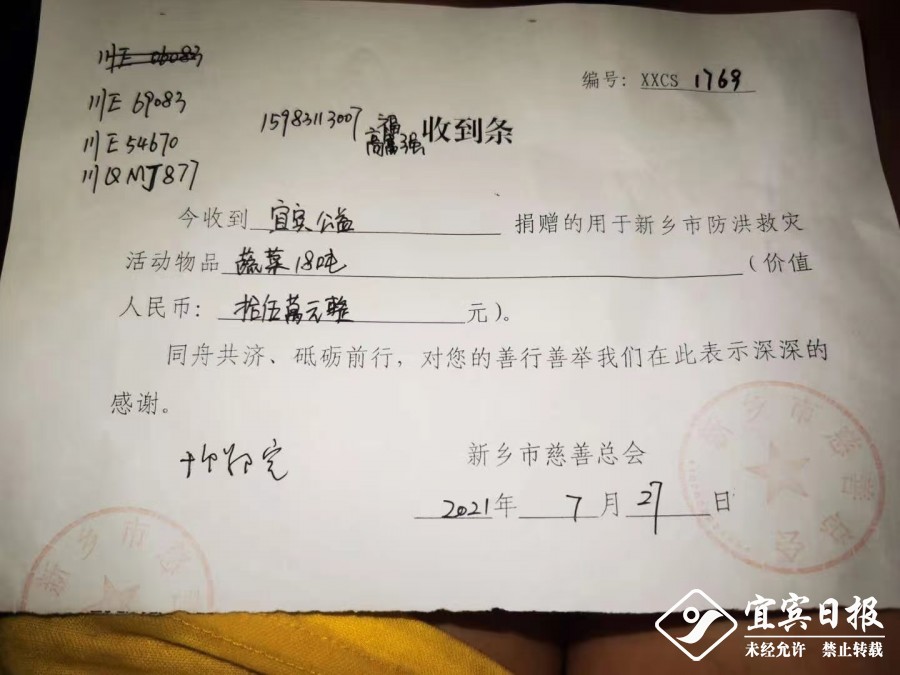 川E 06083
川E 69083
川E 54670
川Q MJ877
编号：XXCS 1769
15983113007 高富强 收到条
今收到 宜宾公益 捐赠的用于新乡市防洪救灾
活动物品 蔬菜18吨 （价值
人民币： 拾伍萬元整 元）。
同舟共济、砥砺前行，对您的善行善举我们在此表示深深的
感谢。
新乡市慈善总会
2021年 7月 27日
新乡市慈善总会
新乡市慈善
宜宾日报
未经允许 禁止转载